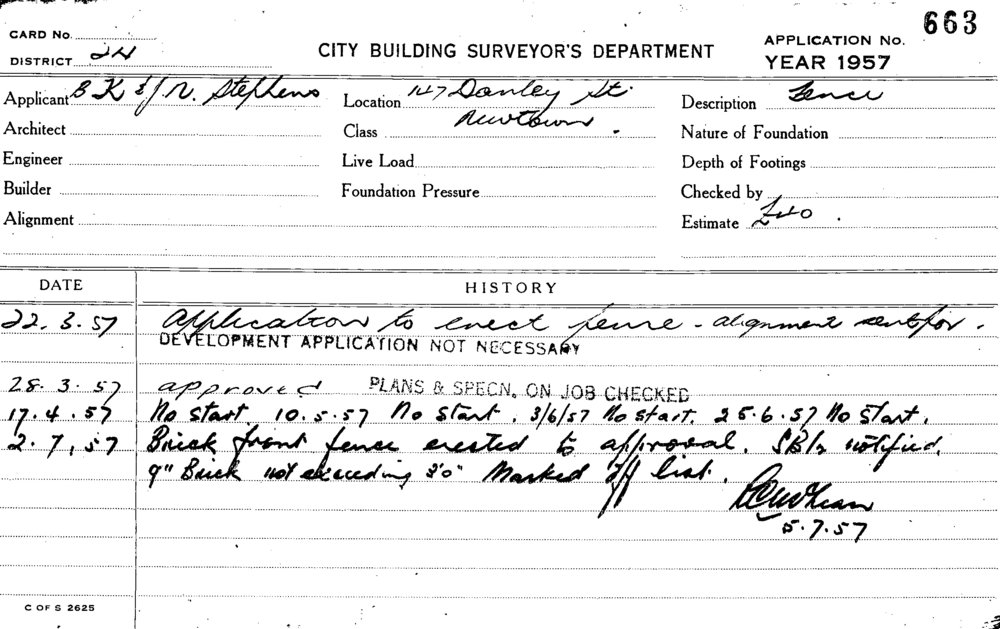 663
CARD No.
DISTRICT 24
CITY BUILDING SURVEYOR'S DEPARTMENT
APPLICATION No.
YEAR 1957
Applicant B K & J N. Stephens
Location 147 Denley St.
Newtown
Description Fence
Architect
Class
Nature of Foundation
Engineer
Live Load
Depth of Footings
Builder
Foundation Pressure
Checked by
Alignment
Estimate £40
DATE
HISTORY
22.3.57 Application to erect fence - alignment sent for.
DEVELOPMENT APPLICATION NOT NECESSARY
28.3.57 approved PLANS & SPECN. ON JOB CHECKED
17.4.57 No start 10.5.57 No start. 3/6/57 No start. 25.6.57 No start.
2.7.57 Brick front fence erected to approval. notified.
9" Brick not exceeding 3'0" Marked off list.
5.7.57
C OF S 2625